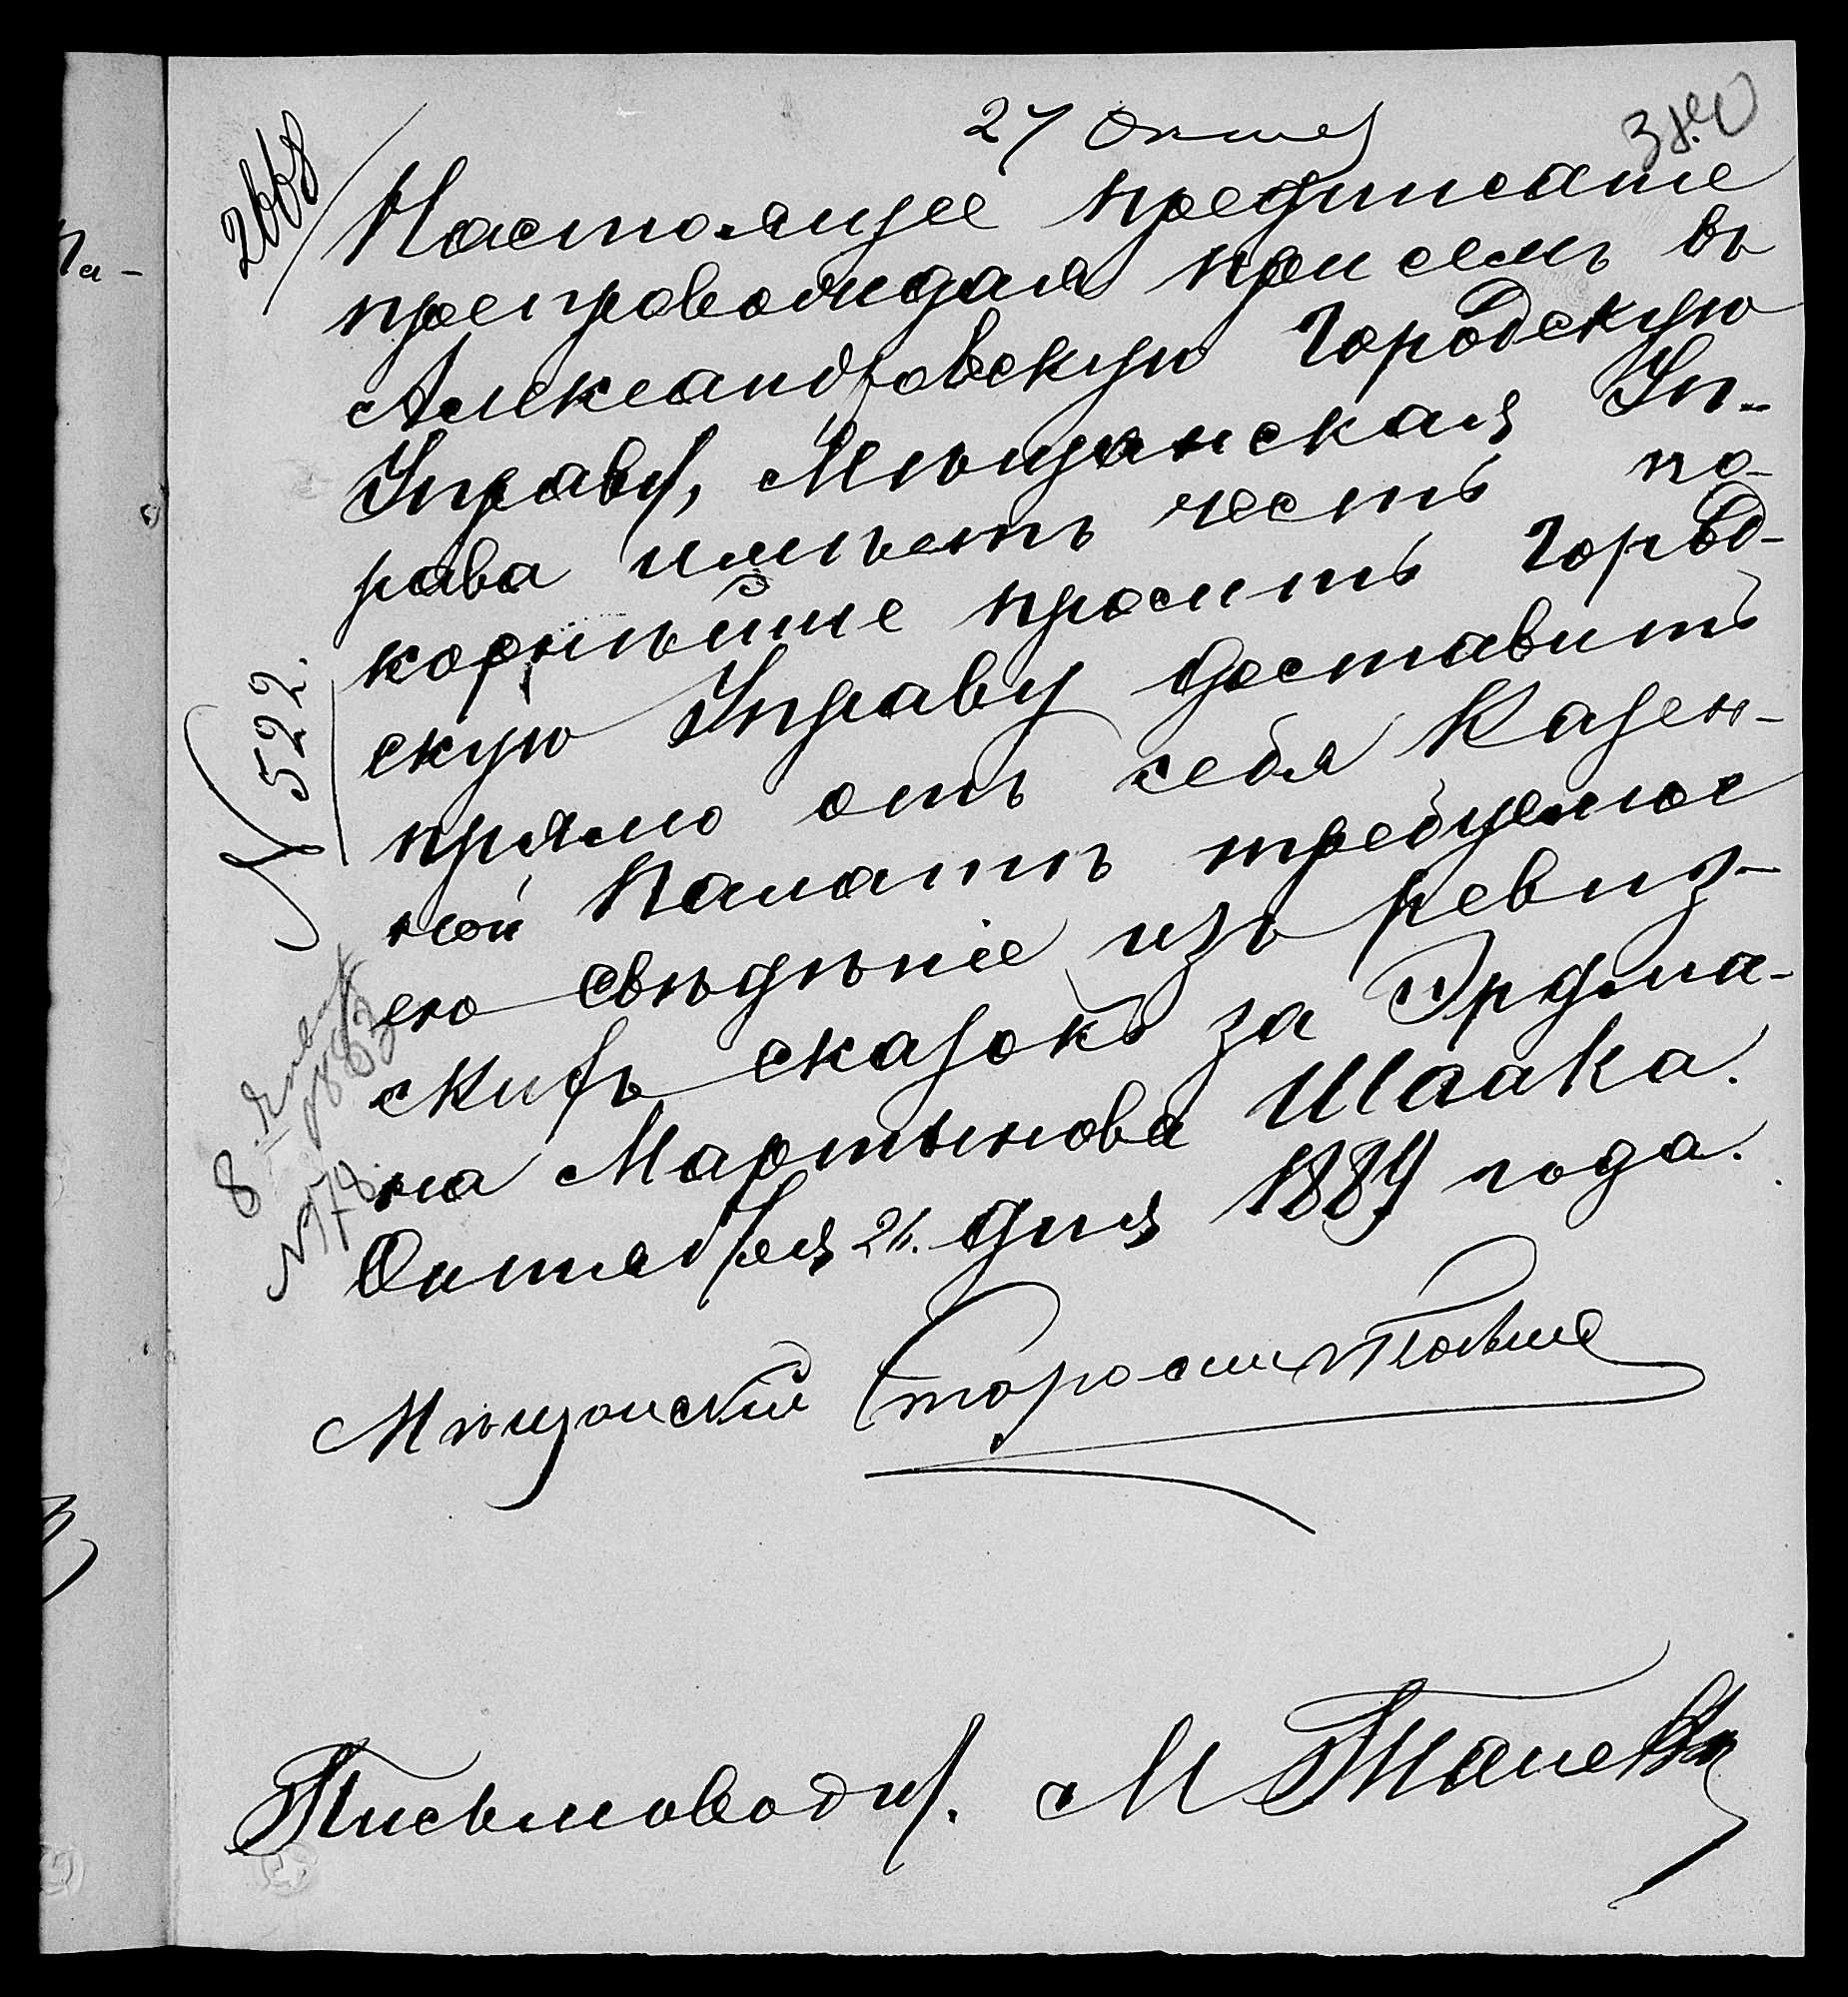 27 Октяб
2668
Настоящее предписаніе
препровождая при семъ въ
Александровскую Городскую
Управу, Мѣщанская Уп-
рава имѣетъ честь по-
корнѣйше просить Город-
скую Управу доставить
прямо отъ себя Казен-
ной Палатѣ требуемое
ею свѣдѣніе изъ ревиз-
скихъ сказокъ за Эрдма-
на Мартынова Шаака.
Октября 26. дня 1884 года.
N 522.
8 Января
1883
N 178
Мѣщанский Староста
Письмовод. М